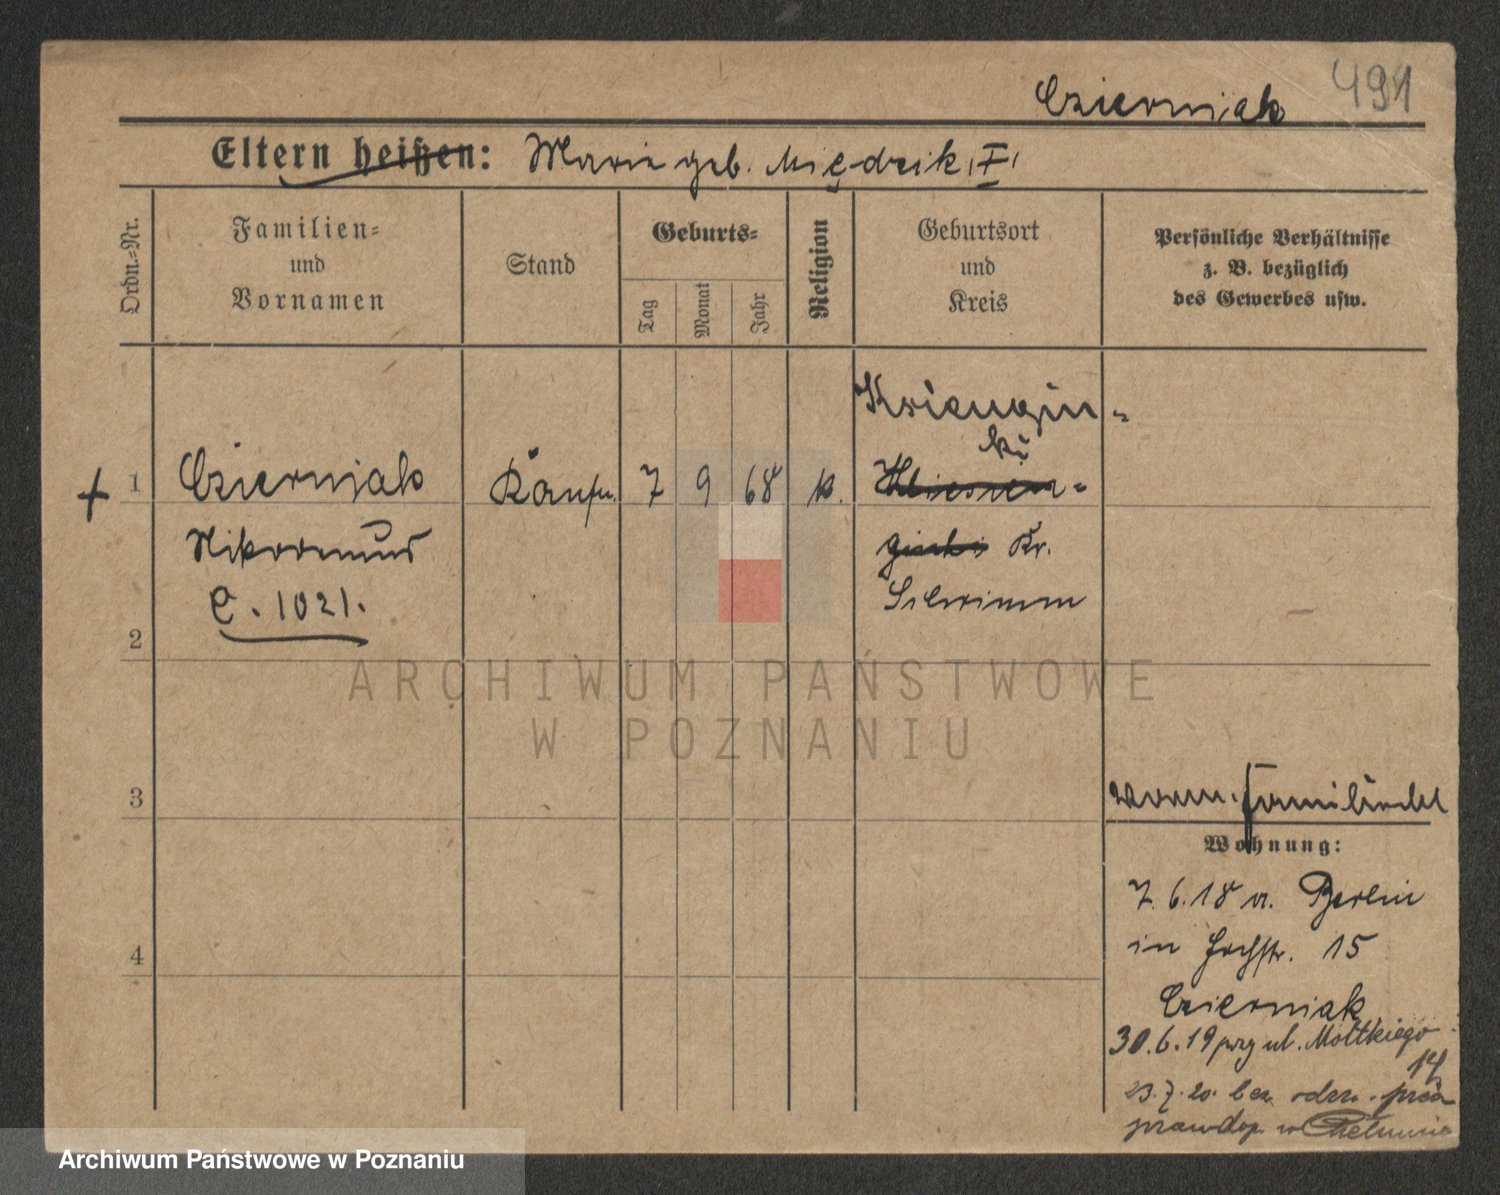 Czierniak 491
Eltern heißen: Marie geb. Międzik, F
Ordn.-Nr.
Familien-
und
Vornamen
Stand
Geburts-
Tag
Monat
Jahr
Religion
Geburtsort
und
Kreis
Persönliche Verhältnisse
z. B. bezüglich
des Gewerbes usw.
1 Czierniak Kaufm. 7 9 68 k.
Kr.
C. 1021.
2
Schrimm
ARCHIWUM PAŃSTWOWE
W POZNANIU
3
Wohnung:
7.6.18 v. Berlin
4
in Hochstr. 15
Czierniak
30.6.19 przy ul. Moltkiego
14
23.7.20. bez
prawdop. w
Archiwum Państwowe w Poznaniu